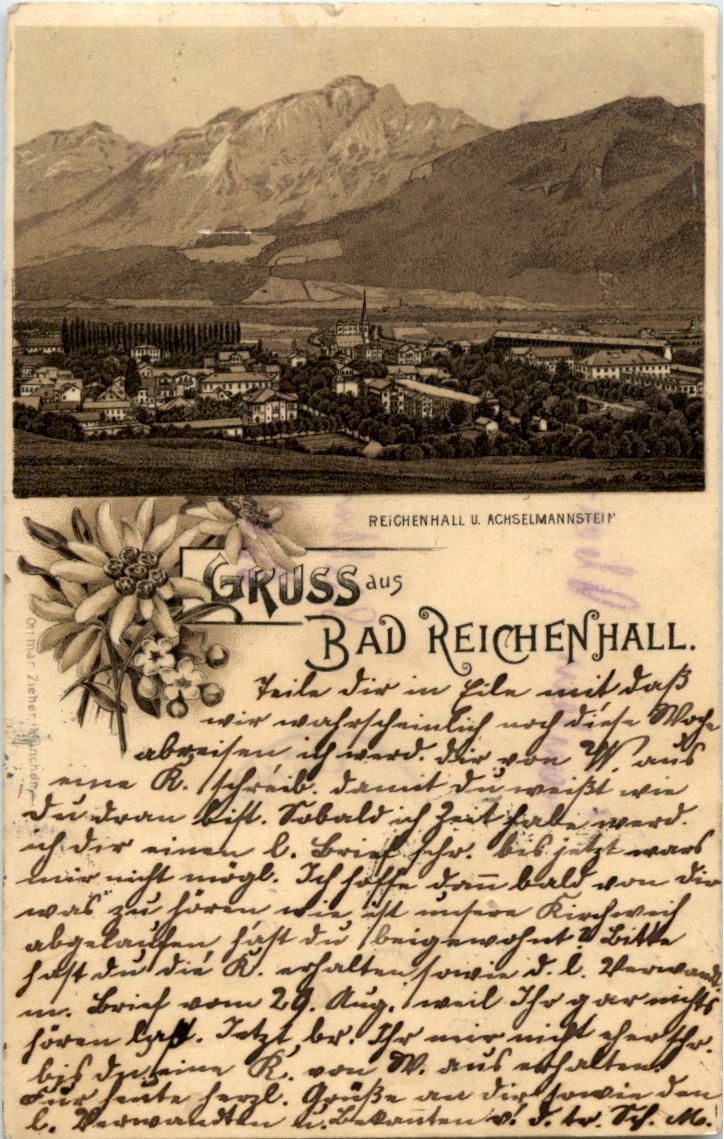 REICHENHALL U. ACHSELMANNSTEIN
GRUSS aus
BAD REICHENHALL.
Ottmar Zieher, München
Teile dir in Eile mit daß
wir wahrscheinlich noch diese Woche
abreisen, ich werd. dir von W. aus
eine K. schreib. damit du weißt wie
du dran bist. Sobald ich Zeit habe werd.
ich dir einen l. Brief schr. bis jetzt wars
mir nicht mögl. Ich hoffe dann bald von dir
was zu hören wie ist unsere Kirchweih
abgelaufen hast du beigewohnt? Bitte
hast du die K. erhalten sowie d. l. Verwand.
m. Brief vom 29. Aug. weil Ihr gar nichts
hören laßt. Jetzt br. Ihr mir nicht eher schr.
bis du eine K. von W. aus erhalten.
Für heute herzl. Grüße an dir sowie den
l. Verwandten u. Bekannten v. d. tr. Sch. M.